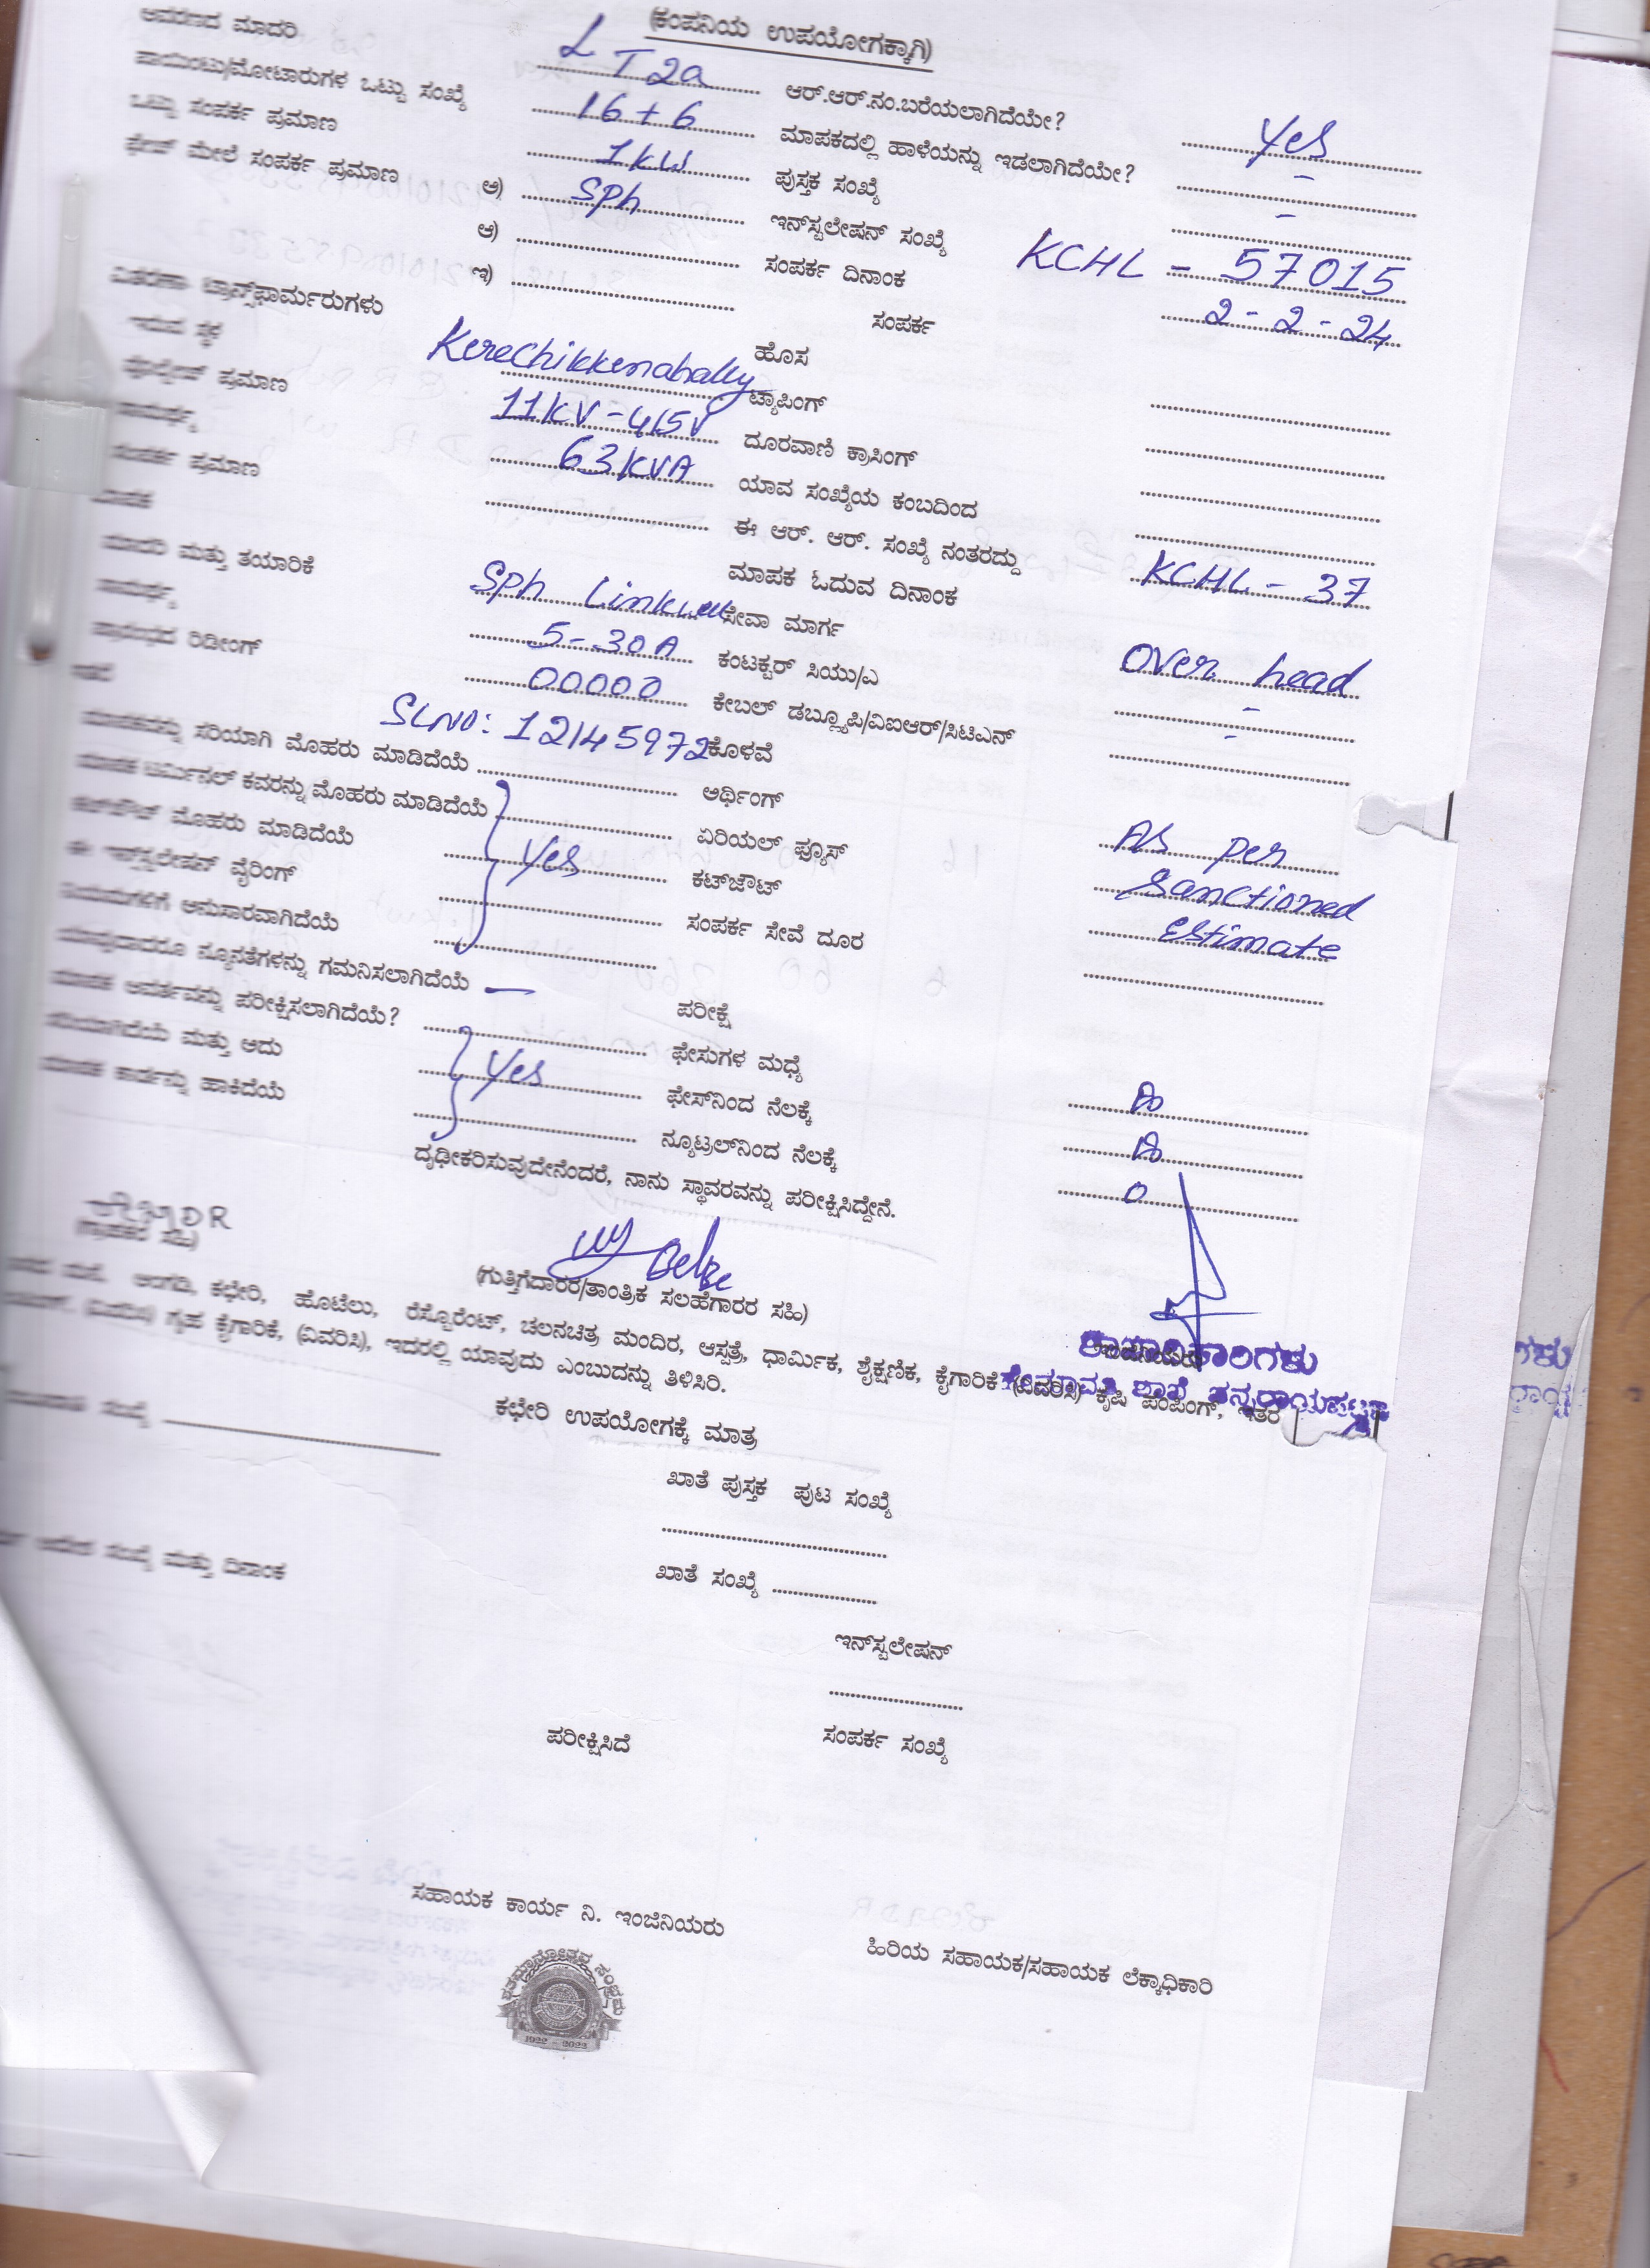 (ಕಂಪನಿಯ ಉಪಯೋಗಕ್ಕಾಗಿ)
ಆವರಣದ ಮಾದರಿ LT2a ಆರ್.ಆರ್.ನಂ.ಬರೆಯಲಾಗಿದೆಯೇ? Yes
ಪಾಯಿಂಟು/ಮೋಟಾರುಗಳ ಒಟ್ಟು ಸಂಖ್ಯೆ 16+6 ಮಾಪಕದಲ್ಲಿ ಹಾಳೆಯನ್ನು ಇಡಲಾಗಿದೆಯೇ? -
ಒಟ್ಟು ಸಂಪರ್ಕ ಪ್ರಮಾಣ 1KW ಪುಸ್ತಕ ಸಂಖ್ಯೆ -
ಫೇಜ್ ಮೇಲೆ ಸಂಪರ್ಕ ಪ್ರಮಾಣ ಅ) SPh ಇನ್‌ಸ್ಟಲೇಷನ್ ಸಂಖ್ಯೆ KCHL - 57015
ಆ) ಸಂಪರ್ಕ ದಿನಾಂಕ 2-2-24
ಇ) ಸಂಪರ್ಕ
ವಿತರಣಾ ಟ್ರಾನ್ಸ್‌ಫಾರ್ಮರುಗಳು ಹೊಸ
ಇರುವ ಸ್ಥಳ Kerechikkenahally ಟ್ಯಾಪಿಂಗ್
ವೋಲ್ಟೇಜ್ ಪ್ರಮಾಣ 11KV-415V ದೂರವಾಣಿ ಕ್ರಾಸಿಂಗ್
ಸಾಮರ್ಥ್ಯ 63KVA ಯಾವ ಸಂಖ್ಯೆಯ ಕಂಬದಿಂದ
ಸಂಪರ್ಕ ಪ್ರಮಾಣ ಈ ಆರ್. ಆರ್. ಸಂಖ್ಯೆ ನಂತರದ್ದು KCHL - 37
ಮಾಪಕ ಮಾಪಕ ಓದುವ ದಿನಾಂಕ
ಮಾದರಿ ಮತ್ತು ತಯಾರಿಕೆ SPh Linkwell ಸೇವಾ ಮಾರ್ಗ Over head
ಸಾಮರ್ಥ್ಯ 5-30A ಕಂಟಕ್ಟರ್ ಸಿಯು/ಎ -
ಪ್ರಾರಂಭದ ರಿಡೀಂಗ್ 00000 ಕೇಬಲ್ ಡಬ್ಲ್ಯೂಪಿ/ವಿಐಆರ್/ಸಿಟಿಎನ್ -
SLNO: 12145972 ಕೊಳವೆ
ಮಾಪಕವನ್ನು ಸರಿಯಾಗಿ ಮೊಹರು ಮಾಡಿದೆಯೆ ಅರ್ಥಿಂಗ್ As per
ಮಾಪಕ ಟರ್ಮಿನಲ್ ಕವರನ್ನು ಮೊಹರು ಮಾಡಿದೆಯೆ ಏರಿಯಲ್ ಫ್ಯೂಸ್ Sanctioned
ಕಟ್‌ಔಟ್ ಮೊಹರು ಮಾಡಿದೆಯೆ Yes ಕಟ್‌ಔಟ್ Estimate
ಈ ಇನ್‌ಸ್ಟಲೇಷನ್ ವೈರಿಂಗ್ ಸಂಪರ್ಕ ಸೇವೆ ದೂರ
ನಿಯಮಗಳಿಗೆ ಅನುಸಾರವಾಗಿದೆಯೆ
ಯಾವುದಾದರೂ ನ್ಯೂನತೆಗಳನ್ನು ಗಮನಿಸಲಾಗಿದೆಯೆ — ಪರೀಕ್ಷೆ
ಮಾಪಕ ಆವರ್ತವನ್ನು ಪರೀಕ್ಷಿಸಲಾಗಿದೆಯೆ? ಫೇಸುಗಳ ಮಧ್ಯೆ
ಸರಿಯಾಗಿದೆಯೆ ಮತ್ತು ಅದು Yes ಫೇಸ್‌ನಿಂದ ನೆಲಕ್ಕೆ
ಮಾಪಕ ಕಾರ್ಡನ್ನು ಹಾಕಿದೆಯೆ ನ್ಯೂಟ್ರಲ್‌ನಿಂದ ನೆಲಕ್ಕೆ 0
ದೃಢೀಕರಿಸುವುದೇನೆಂದರೆ, ನಾನು ಸ್ಥಾವರವನ್ನು ಪರೀಕ್ಷಿಸಿದ್ದೇನೆ.
(ಗ್ರಾಹಕರ ಸಹಿ)
(ಗುತ್ತಿಗೆದಾರರ/ತಾಂತ್ರಿಕ ಸಲಹೆಗಾರರ ಸಹಿ)
ಶಾಖಾಧಿಕಾರಿಗಳು
ಹೇಮಾವತಿ ಶಾಖೆ, ಚನ್ನರಾಯಪಟ್ಟಣ
ಮನೆ, ಅಂಗಡಿ, ಕಛೇರಿ, ಹೊಟೆಲು, ರೆಸ್ಟೊರೆಂಟ್, ಚಲನಚಿತ್ರ ಮಂದಿರ, ಆಸ್ಪತ್ರೆ, ಧಾರ್ಮಿಕ, ಶೈಕ್ಷಣಿಕ, ಕೈಗಾರಿಕೆ (ವಿವರಿಸಿ) ಕೃಷಿ ಪಂಪಿಂಗ್, ಇತರೆ
(ವಿವರಿಸಿ) ಗೃಹ ಕೈಗಾರಿಕೆ, (ವಿವರಿಸಿ), ಇದರಲ್ಲಿ ಯಾವುದು ಎಂಬುದನ್ನು ತಿಳಿಸಿರಿ.
ಕಛೇರಿ ಉಪಯೋಗಕ್ಕೆ ಮಾತ್ರ
ಸಂಖ್ಯೆ
ಖಾತೆ ಪುಸ್ತಕ ಪುಟ ಸಂಖ್ಯೆ
ಆದೇಶ ಸಂಖ್ಯೆ ಮತ್ತು ದಿನಾಂಕ
ಖಾತೆ ಸಂಖ್ಯೆ
ಇನ್‌ಸ್ಟಲೇಷನ್
ಪರೀಕ್ಷಿಸಿದೆ ಸಂಪರ್ಕ ಸಂಖ್ಯೆ
ಸಹಾಯಕ ಕಾರ್ಯ ನಿ. ಇಂಜಿನಿಯರು
ಹಿರಿಯ ಸಹಾಯಕ/ಸಹಾಯಕ ಲೆಕ್ಕಾಧಿಕಾರಿ
1922 - 2022